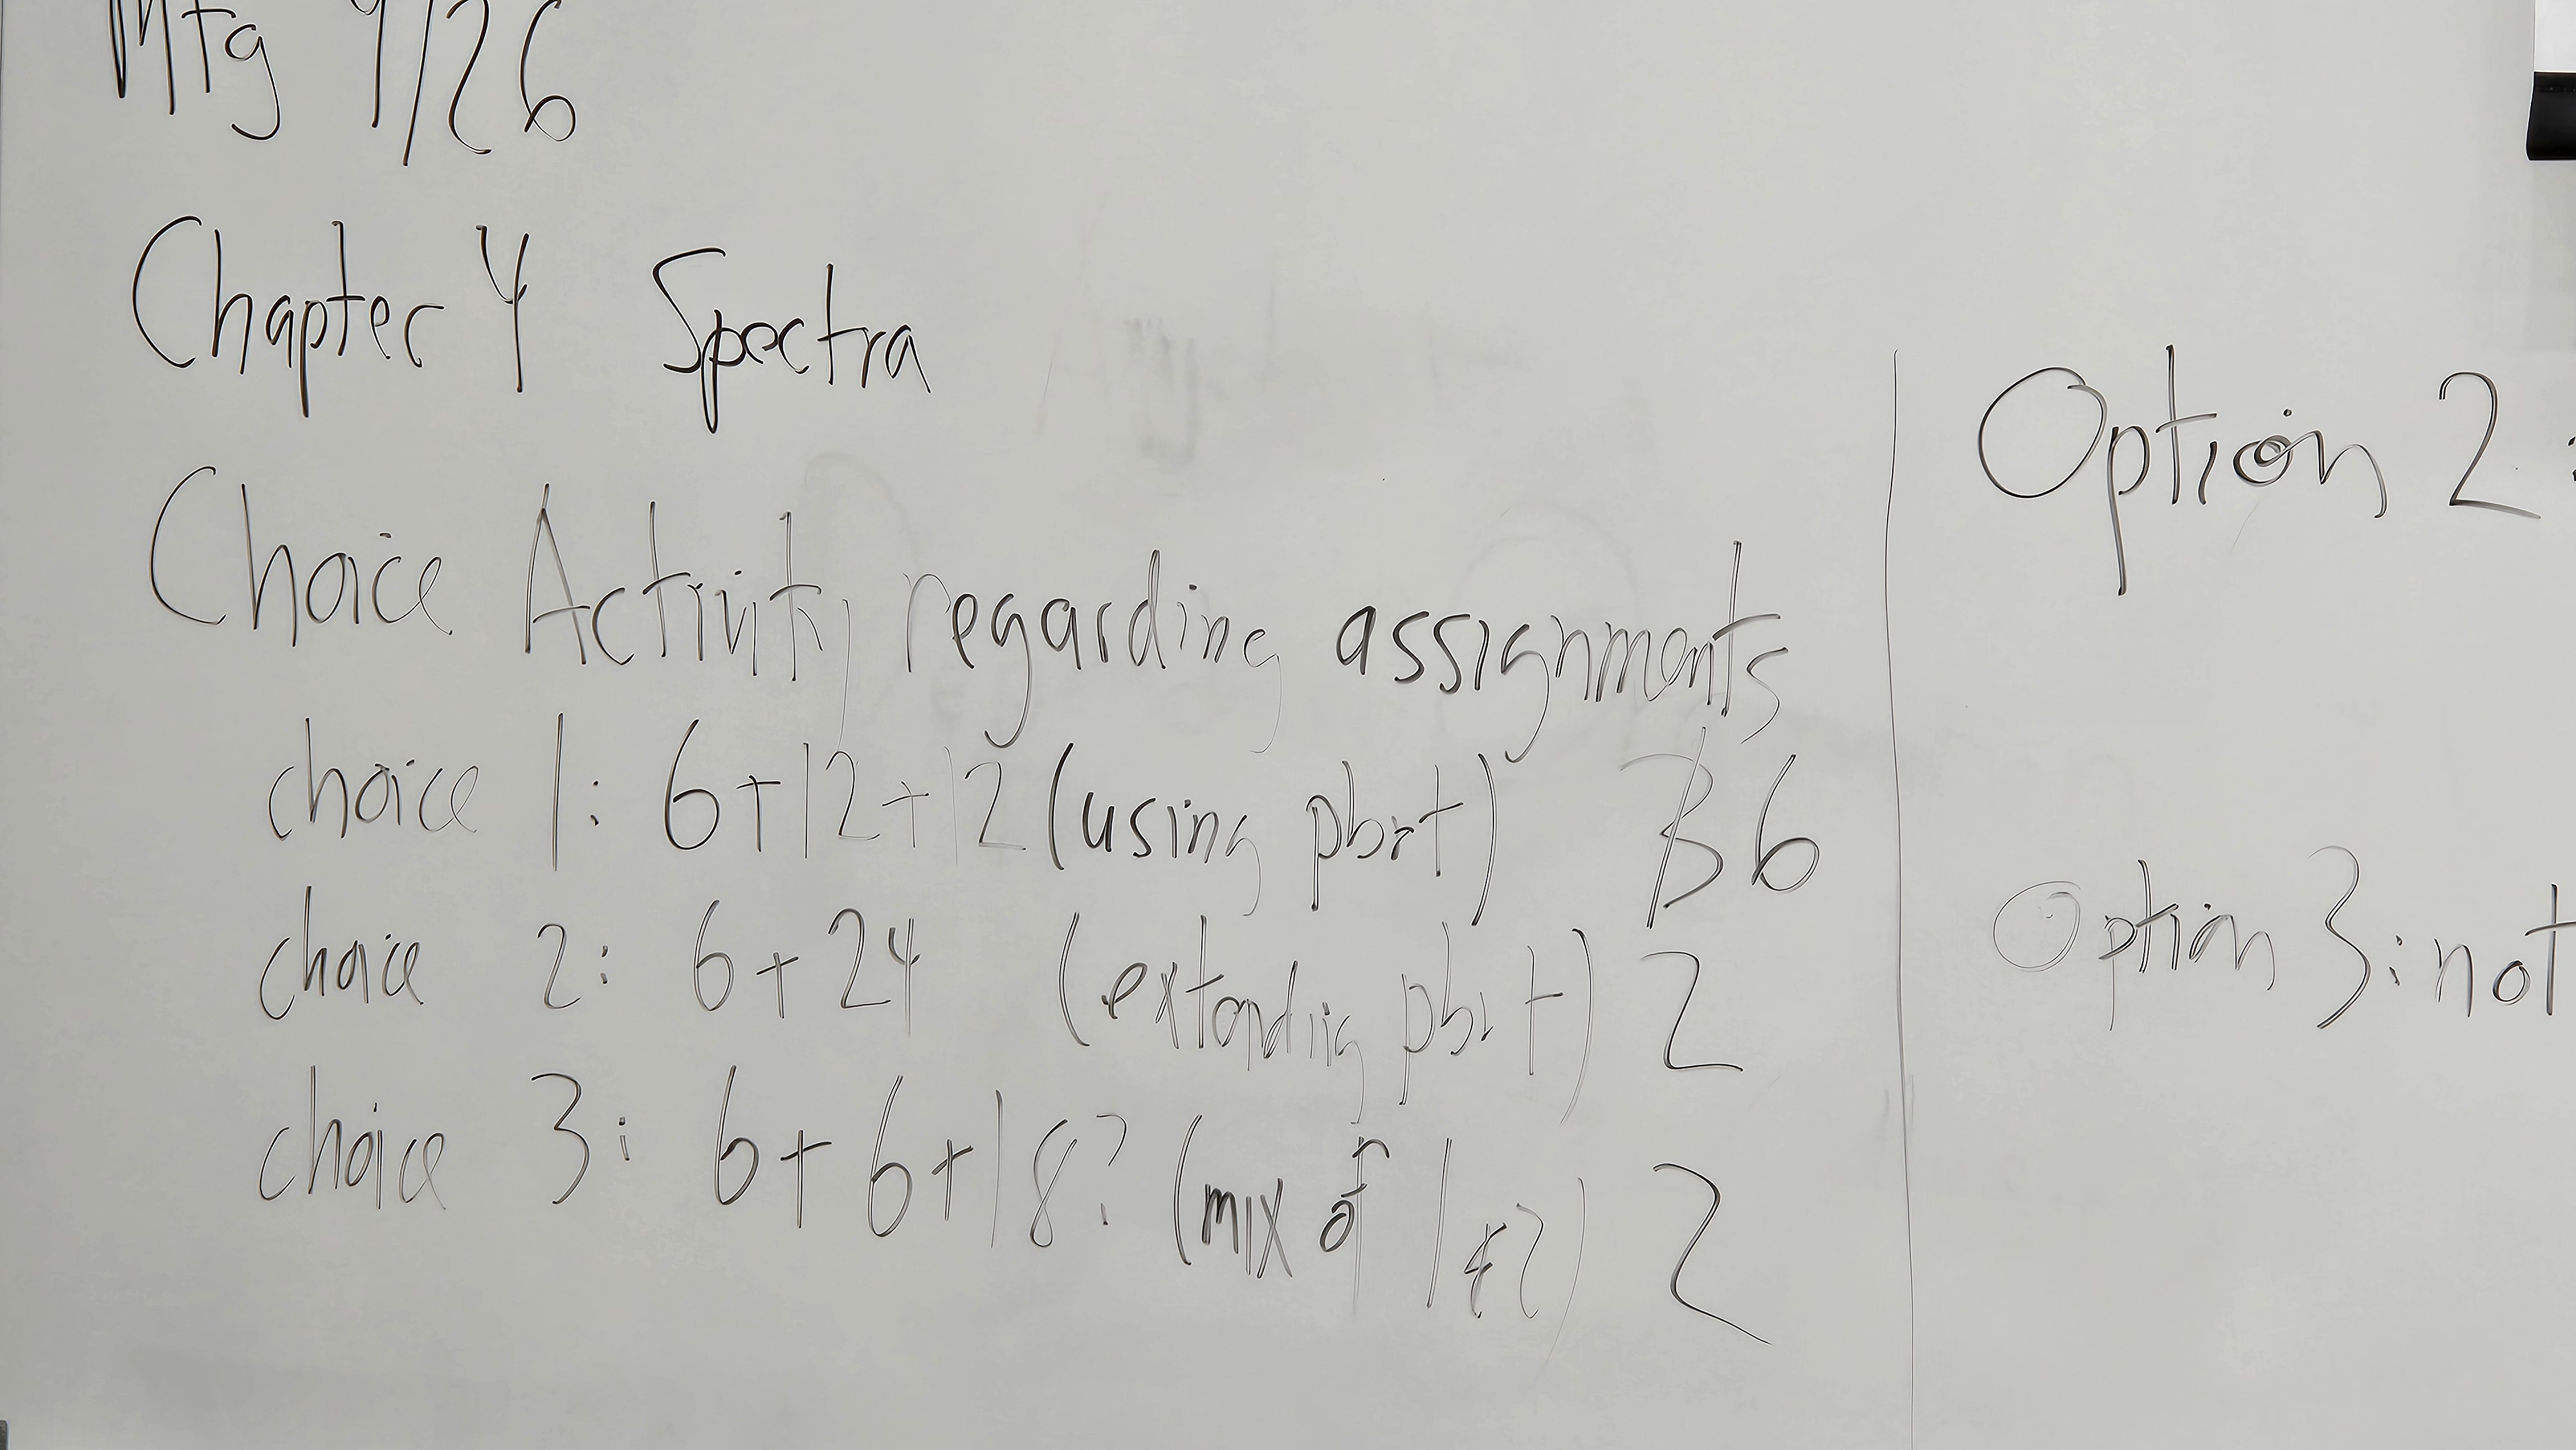 Mtg 9/26
Chapter 4 Spectra
Choice Activity regarding assignments
choice 1: 6+12+12 (using pbrt) 6
choice 2: 6+24 (extending pbrt) 2
choice 3: 6+6+18? (mix of 1&2) 2
Option 2:
Option 3: not